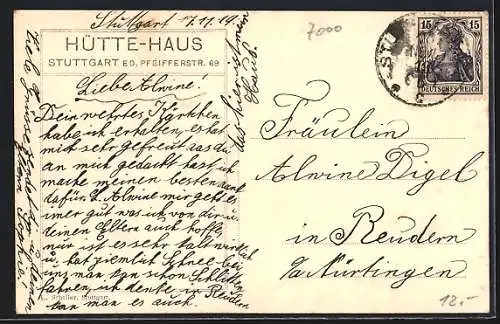 Stuttgart 17.11.19.
7000
HÜTTE-HAUS
STUTTGART ED. PFEIFFERSTR. 69
Liebe Alwine!
Dein wertes Kärtchen
habe ich erhalten, es hat
mich sehr gefreut das du
an mich gedacht hast ich
mache meinen besten dank
dafür. L. Alwine mir geht es
immer gut was ich von dir u.
deinen Eltern auch hoffe,
nur ist es sehr kalt
hat ziemlich Schnee bei
uns man kan schon Schlitten
fahren, ich denke in Reudern
kan man es auch.
Viele Grüsse
Sophie
das hier ist mein
Haus.
L. Schaller, Stuttgart.
STU
15 15
DEUTSCHES REICH
Fräulein
Alwine Digel
in Reudern
o/a Nürtingen
12.-